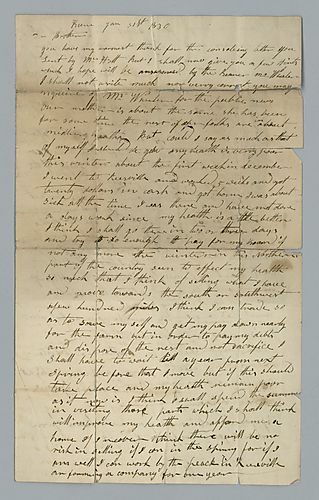 Jan 31st 1830
you have my earnest thank for the consoling letter you
sent by Mr Holt But I shall now give you a few lines
which I hope will be answered by the bearer Mr Wheeler
I shall not write much nor very correct you may
enquire of Mr Wheeler for the public news
Our mother is about the same she has been
for some time the rest of the folks are about
middling healthy But could I say as much as that
of myself I should be glad my health is very poor
this winter about the first week in december
I went to Keesville and worked weeks and got
twenty dollars in cash and got home I was about
sick all the time I was there and have not done
a days work since my health is a little better
I think I shall go there in two or three days
and try to do enough to pay for my board if
not any more the winters in this Northern
part of the country seem to affect my health
so much that I think of selling what I have
and move towards the south or southwest
a few hundred miles I think I can trade so
as to save my self and get my pay down nearly
for the farm but in order to pay my debt
and dispose of the rest and not sacrifice I
shall have to wait till a year from next
spring before that I move but if this should
take place and my health remain poor
as it now is I think I shall spend the summer
in visiting those parts which I shall think
will improve my health and appoint me a
home if I recover I think there will be no
risk in selling if I can in the spring for if I
am well I can work by the in Keesville
or journey a company for one year